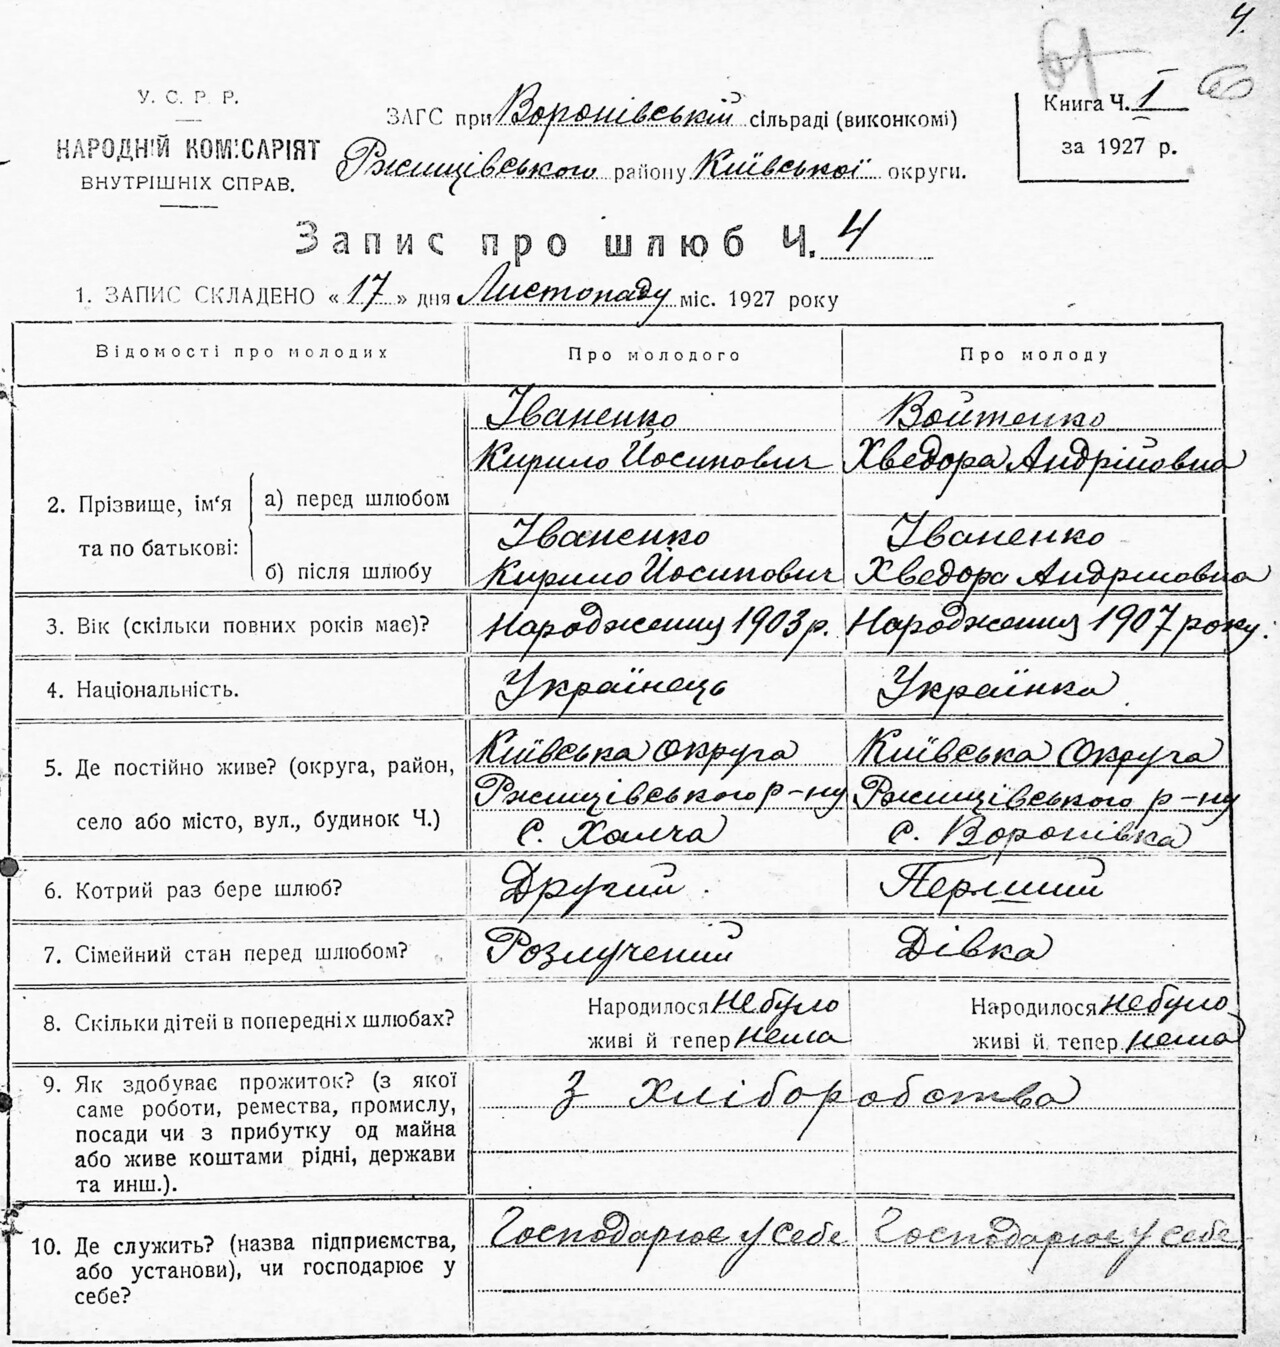 4.
61
У. С. Р. Р.
НАРОДНІЙ КОМІСАРІЯТ
ВНУТРІШНІХ СПРАВ.
ЗАГС при Воронівській сільраді (виконкомі)
Ржищівського району Київської округи.
Книга Ч. I
за 1927 р.
Запис про шлюб Ч. 4
1. ЗАПИС СКЛАДЕНО «17» дня Листопаду міс. 1927 року
Відомості про молодих Про молодого Про молоду
2. Прізвище, ім'я та по батькові:
а) перед шлюбом
Іваненко
Кирило Йосипович
Войтенко
Хведора Андрійовна
б) після шлюбу
Іваненко
Кирило Йосипович
Іваненко
Хведора Андрійовна
3. Вік (скільки повних років має)? Народження 1903 р. Народження 1907 року.
4. Національність. Українець Українка
5. Де постійно живе? (округа, район,
село або місто, вул., будинок Ч.)
Київська округа
Ржищівського р-ну
с. Халча
Київська Округа
Ржищівського р-ну
с. Воронівка
6. Котрий раз бере шлюб? Другий Перший
7. Сімейний стан перед шлюбом? Розлучений Дівка
8. Скільки дітей в попередніх шлюбах?
Народилося небуло
живі й тепер нема
Народилося небуло
живі й тепер нема
9. Як здобуває прожиток? (з якої
саме роботи, ремества, промислу,
посади чи з прибутку од майна
або живе коштами рідні, держави
та инш.).
З хліборобства
10. Де служить? (назва підприємства,
або установи), чи господарює у
себе?
Господарює у себе
Господарює у себе